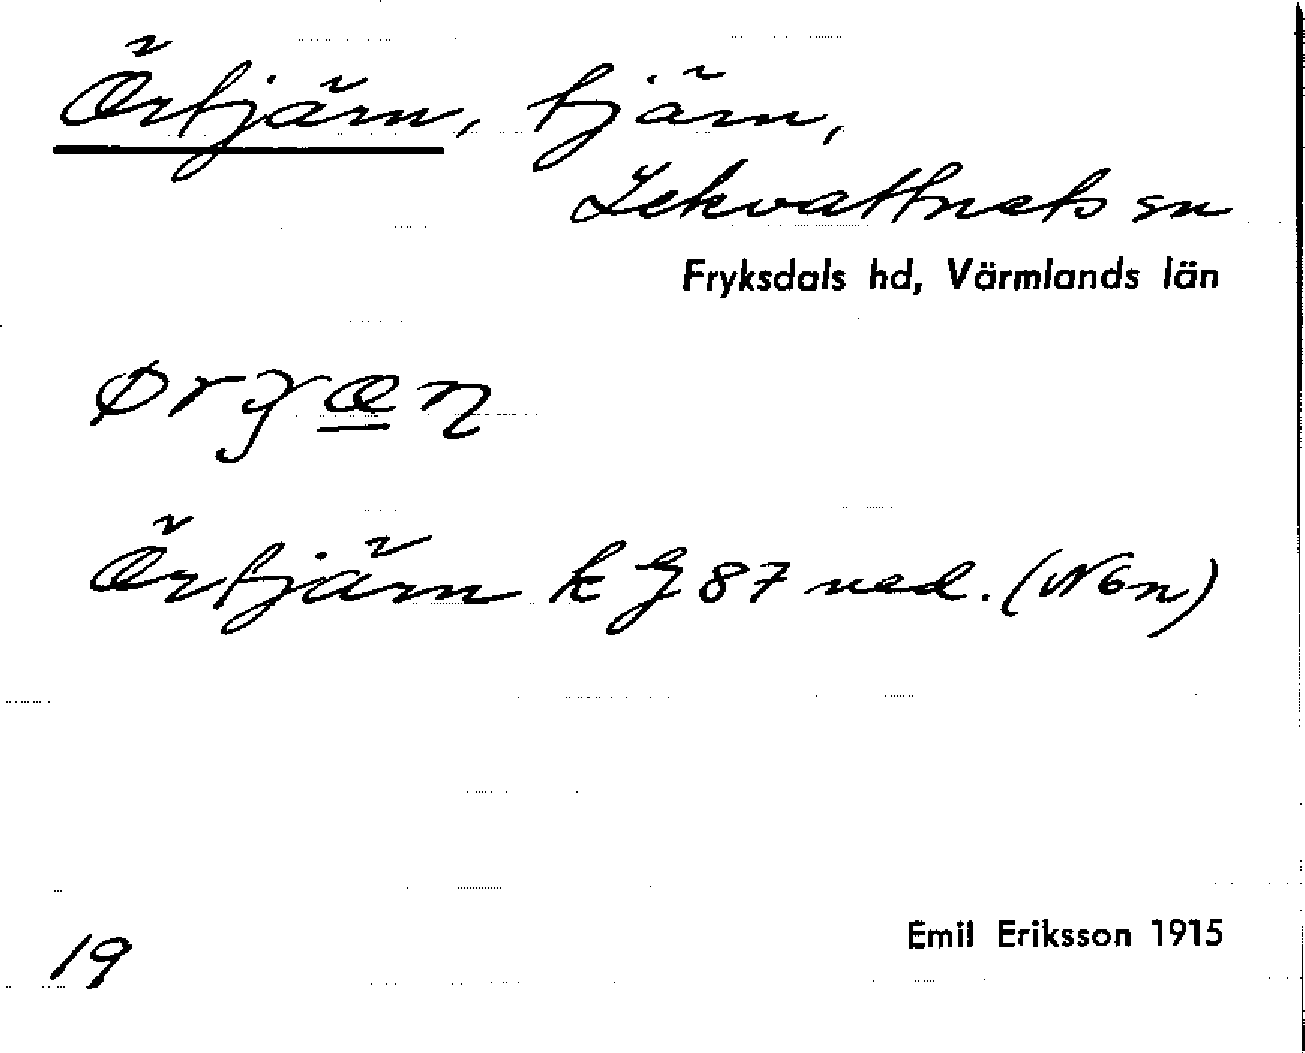 Örtjärn, tjärn,
Lekvattnets sn
Fryksdals hd, Värmlands län
Örtjärn k G 87 ned. (N6n)
19
Emil Eriksson 1915